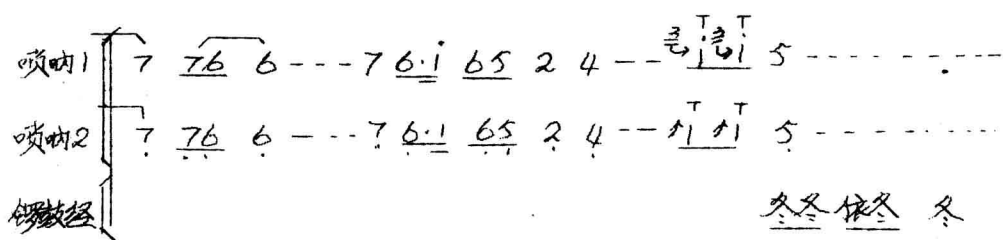 唢呐1 7 76 6 - - - 7 6·i 65 2 4 - - i i 5 - - - - - - - - - -
唢呐2 7 76 6 - - - 7 6·1 65 2 4 - - 1 1 5 - - - - - - - - - -
锣鼓经 冬冬 依冬 冬